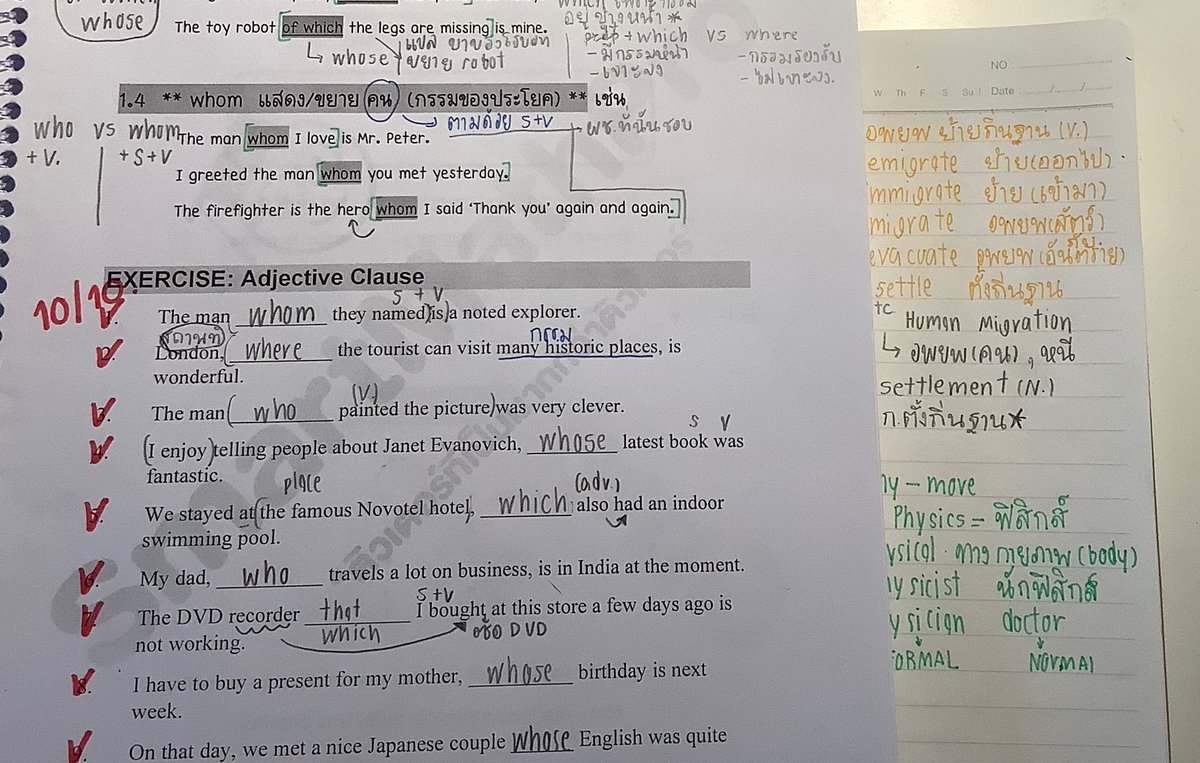 whose
The toy robot of which the legs are missing is mine.
อยู่ข้างหน้า*
whose
แปล ขาของโรบอท
ขยาย robot
prep + which vs where
- มีกรรมหน้า
- เจาะจง
- กรรมรองรับ
- ไม่เจาะจง.
1.4 ** whom แสดง/ขยาย คน (กรรมของประโยค) ** เช่น
ตามด้วย S+V
who vs whom
+ V. + S+V
The man whom I love is Mr. Peter.
ผช.ที่ฉันชอบ
I greeted the man whom you met yesterday.
The firefighter is the hero whom I said 'Thank you' again and again.
EXERCISE: Adjective Clause
10/10
S + V
1. The man whom they named is a noted explorer.
สถานที่
กรรม
2. London, where the tourist can visit many historic places, is
wonderful.
(V)
3. The man who painted the picture was very clever.
S V
4. (I enjoy) telling people about Janet Evanovich, whose latest book was
fantastic.
place
(adv.)
5. We stayed at the famous Novotel hotel, which also had an indoor
swimming pool.
6. My dad, who travels a lot on business, is in India at the moment.
S+V
7. The DVD recorder that I bought at this store a few days ago is
which
ซื้อ DVD
not working.
8. I have to buy a present for my mother, whose birthday is next
week.
9. On that day, we met a nice Japanese couple whose English was quite
Smart
NO :
W Th F S Su Date : ....../....../......
อพยพ ย้ายถิ่นฐาน (V.)
emigrate ย้าย(ออกไป)
mmigrate ย้าย (เข้ามา)
migrate อพยพ(สัตว์)
evacuate อพยพ(อันตราย)
settle ตั้งถิ่นฐาน
tc Human Migration
อพยพ(คน), หนี
settlement (N.)
ก.ตั้งถิ่นฐาน*
hy - move
Physics = ฟิสิกส์
ysical ทางกายภาพ (body)
ysicist นักฟิสิกส์
ysician doctor
FORMAL NORMAL